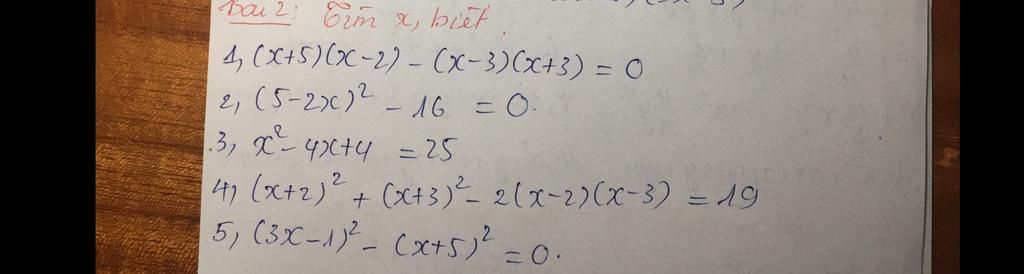 Bài 2: Tìm x, biết.
1, (x+5)(x-2) - (x-3)(x+3) = 0
2, (5-2x)² - 16 = 0.
3, x² - 4x+4 = 25
4, (x+2)² + (x+3)² - 2(x-2)(x-3) = 19
5, (3x-1)² - (x+5)² = 0.